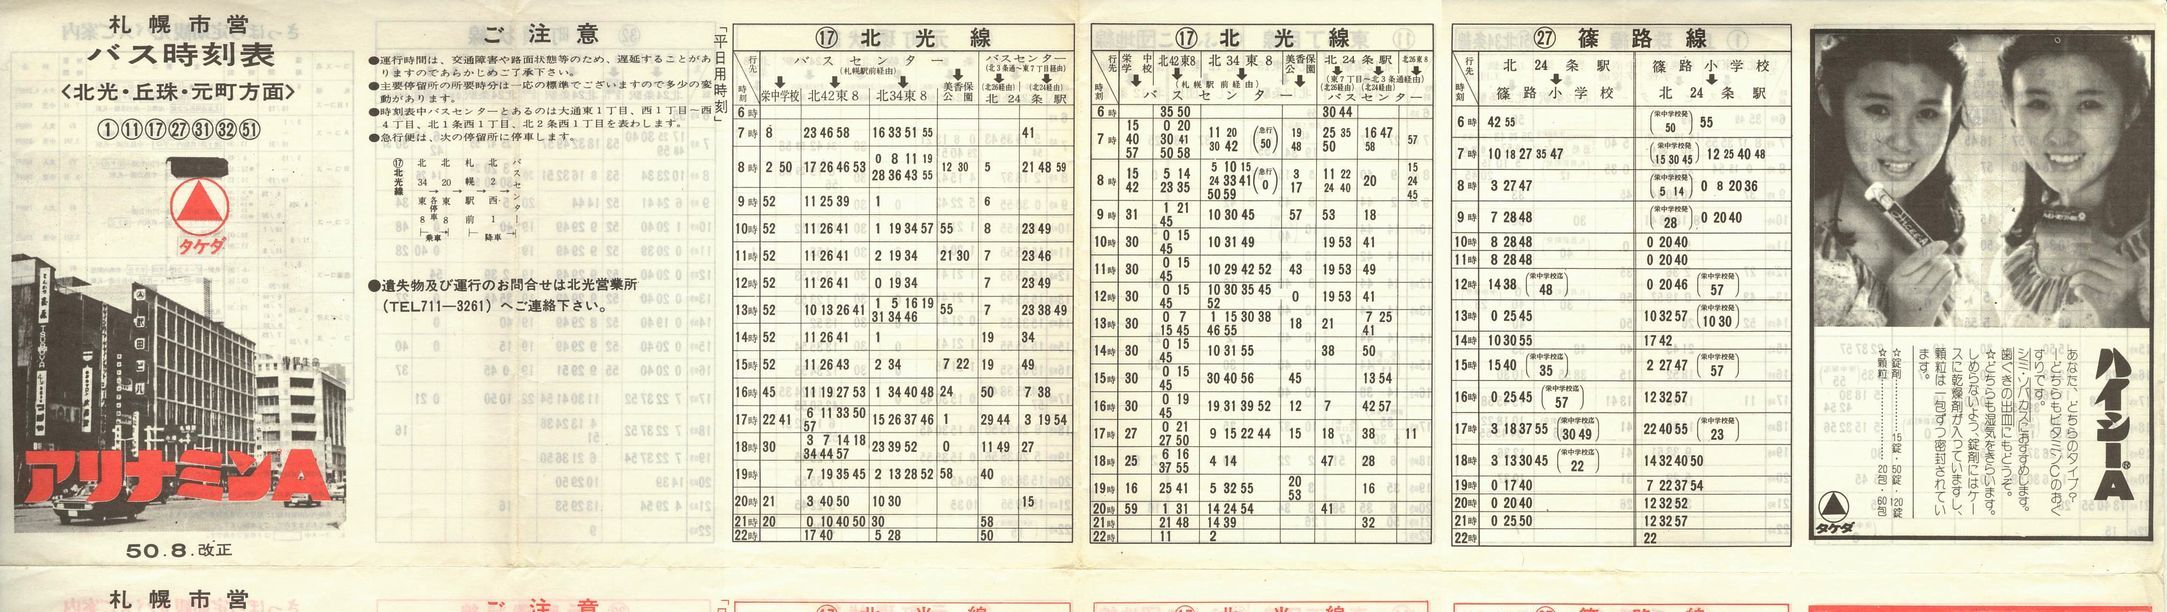 札幌市営
バス時刻表
〈北光・丘珠・元町方面〉
①⑪⑰㉗㉛㉜51
タケダ
アリナミンA
50.8.改正
ご注意
●運行時間は、交通障害や路面状態等のため、遅延することがありますのであらかじめご了承下さい。
●主要停留所の所要時分は一応の標準でございますので多少の変動があります。
●時刻表中バスセンターとあるのは大通東1丁目、西1丁目～西4丁目、北1条西1丁目、北2条西1丁目を表わします。
●急行便は、次の停留所に停車します。
⑰北光線
北34東8→北20東8→札幌駅前→北2西1→バスセンター
各停車
乗車 降車
●遺失物及び運行のお問合せは北光営業所
(TEL711―3261) へご連絡下さい。
「平日用時刻」
⑰ 北光線
行先 時刻
バスセンター (札幌駅前経由)
バスセンター (北3条通～東7丁目経由)
栄中学校 北42東8 北34東8 美香保公園 (北26経由) (北24経由) 北24条駅
6時
7時 8 23 46 58 16 33 51 55 41
8時 2 50 17 26 46 53 0 8 11 19 28 36 43 55 12 30 5 21 48 59
9時 52 11 25 39 1 6
10時 52 11 26 41 1 19 34 57 55 8 23 49
11時 52 11 26 41 2 19 34 21 30 7 23 46
12時 52 11 26 41 0 19 34 7 23 49
13時 52 10 13 26 41 1 5 16 19 31 34 46 55 7 23 38 49
14時 52 11 26 41 1 19 34
15時 52 11 26 43 2 34 7 22 19 49
16時 45 11 19 27 53 1 34 40 48 24 50 7 38
17時 22 41 6 11 33 50 57 15 26 37 46 1 29 44 3 19 54
18時 30 3 7 14 18 34 44 57 23 39 52 0 11 49 27
19時 7 19 35 45 2 13 28 52 58 40
20時 21 3 40 50 10 30 15
21時 20 0 10 40 50 30 58
22時 17 40 5 28 50
⑰ 北光線
行先 時刻
栄中学校 北42東8 北34東8 美香保公園 北24条駅 北26東8
(札幌駅前経由) バスセンター
(東7丁目～北3条通経由) (北26経由) (北24経由) バスセンター
6時 35 50 30 44
7時 15 40 57 0 20 30 41 50 58 11 20 30 42 (急行 50) 19 48 25 35 50 16 47 58 57
8時 15 42 5 14 23 35 5 10 15 24 33 41 50 59 (急行 0) 3 17 11 22 24 40 20 15 24 45
9時 31 1 21 45 10 30 45 57 53 18
10時 30 0 15 45 10 31 49 19 53 41
11時 30 0 15 45 10 29 42 52 43 19 53 49
12時 30 0 15 45 10 30 35 45 52 0 19 53 41
13時 30 0 7 15 45 1 15 30 38 46 55 18 21 7 25 41
14時 30 0 15 45 10 31 55 38 50
15時 30 0 15 45 30 40 56 45 13 54
16時 30 0 19 45 19 31 39 52 12 7 42 57
17時 27 0 21 27 50 9 15 22 44 15 18 38 11
18時 25 6 16 37 55 4 14 47 28
19時 16 25 41 5 32 55 20 53 16
20時 59 1 31 14 24 54 41
21時 21 48 14 39 32
22時 11 2
㉗ 篠路線
行先 時刻
北24条駅 ↓ 篠路小学校
篠路小学校 ↓ 北24条駅
6時 42 55 (栄中学校発 50) 55
7時 10 18 27 35 47 (栄中学校発 15 30 45) 12 25 40 48
8時 3 27 47 (栄中学校発 5 14) 0 8 20 36
9時 7 28 48 (栄中学校発 28) 0 20 40
10時 8 28 48 0 20 40
11時 8 28 48 0 20 40
12時 14 38 (栄中学校迄 48) 0 20 46 (栄中学校発 57)
13時 0 25 45 10 32 57 (栄中学校発 10 30)
14時 10 30 55 17 42
15時 15 40 (栄中学校迄 35) 2 27 47 (栄中学校発 57)
16時 0 25 45 (栄中学校迄 57) 12 32 57
17時 3 18 37 55 (栄中学校迄 30 49) 22 40 55 (栄中学校発 23)
18時 3 13 30 45 (栄中学校迄 22) 14 32 40 50
19時 0 17 40 7 22 37 54
20時 0 20 40 12 32 52
21時 0 25 50 12 32 57
22時 22
ハイシーA
あなた、どちらのタイプ?
―どちらもビタミンCのおくすりです。
シミ・ソバカスにおすすめします。
歯ぐきの出血にもどうぞ。
☆どちらも湿気をきらいます。しめらないよう、錠剤にはケースに乾燥剤が入っていますし、顆粒は一包ずつ密封されています。
☆錠剤……15錠・50錠・120錠
☆顆粒……20包・60包
タケダ
札幌市営
ご注意
⑰ 北光線
⑰ 北光線
㉗ 篠路線